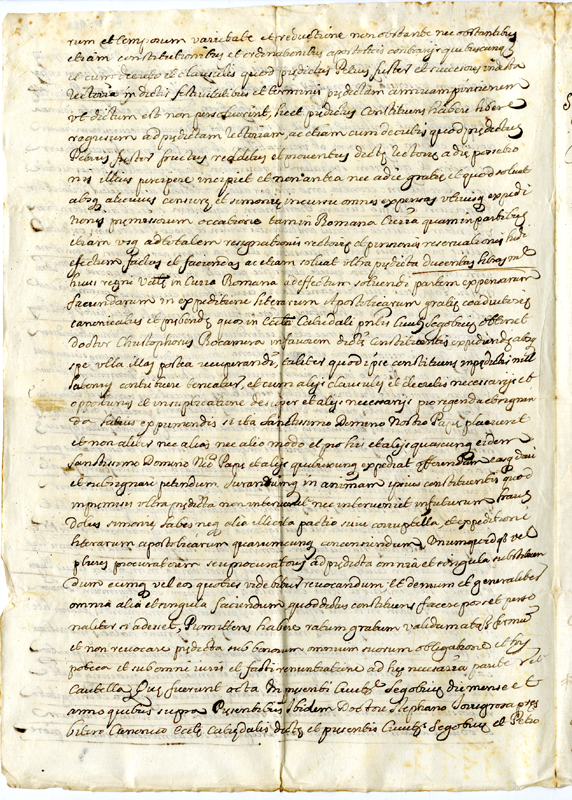 rum et temporum varietate et reductione non obstante nec obstantibus
etiam constitutionibus et ordinationibus apostolicis contrarijs quibuscunq
et cum decreto et clausulis quod predictus Petrus fuster et successores in dicta
Rectoria in dictis festivitatibus et terminis predictam dimidiam pensionem
ut dictum est non persolverint, licet predictus Constituens habere
regressum ad predictam Rectoriam, ac etiam cum decretis quod predictus
Petrus fuster fructus redditus et proventus dictę Rectorię a die possessio
nis illius percipere incipiet et non antea nec a die gratię et quod solvat
absq alicuius censurę et simonię incursu omnes expensas utriusq expedi
tionis premissorum occasione tam in Romana Curia quam in partibus
etiam usq ad totalem resignationis rectorię et pensionis reservationis
effectum factas et faciendas ac etiam solvat ultra predicta ducentas libras
huius regni Valtę in Curia Romana ad effectum solvende partem expensarum
faciendarum in expeditione literarum Apostolicarum gratię coadiutorię
canonicatus et prebendę quos in Eccła Cathedrali pntis Civitę Segobricę obtinet
Doctor Christophorus Rocamora in favorem dictę Constituentis expediendę absq
spe ulla illas postea recuperandi, taliter quod ipse constituens in predictis nihil
solvere contribuere teneatur, et cum alijs clausulis et decretis necessarijs et
oportunis et in supplicatione desuper et alijs necessarijs porrigenda
latius exprimendis si ita Sanctissimo Domino Nostro Papę placuerit
et non aliter nec alias nec alio modo et pro his et alijs quascunq eidem
Sanctissimo Domino Nro Papę et alijs quibuscunq expediat offerendum easq dari
et subsignari petendum Jurandumq in animam ipsius constituentis quod
in premissis ultra predicta non intervenit nec interveniet in futurum fraus
Dolus simonię labes neq alia illicita pactio sive corruptella, et expeditione
literarum apostolicarum quarumcunq consentiendum Unumquodq vel
plures procuratorem seu procuratores ad predicta omnia et singula substituen
dum eumq vel eos quoties videbitur revocandum et demum et generaliter
omnia alia et singula faciendum quod dictus constituens facere posset perso
naliter si adesset, Promittens habere ratum gratum validum atq firmum
et non revocare predicta sub bonorum omnium suorum obligatione et hy
poteca et sub omni iuris et facti renuntiatione ad hęc necessaria pariter
Cautella Quę fuerunt acta In presenti Civitę Segobricę die mense et
anno quibus supra Presentibus Ibidem Doctore Stephano Torregrosa pres
bitero Canonico Ecclę Cathedralis dictę et presentis Civitę Segobricę et Petro